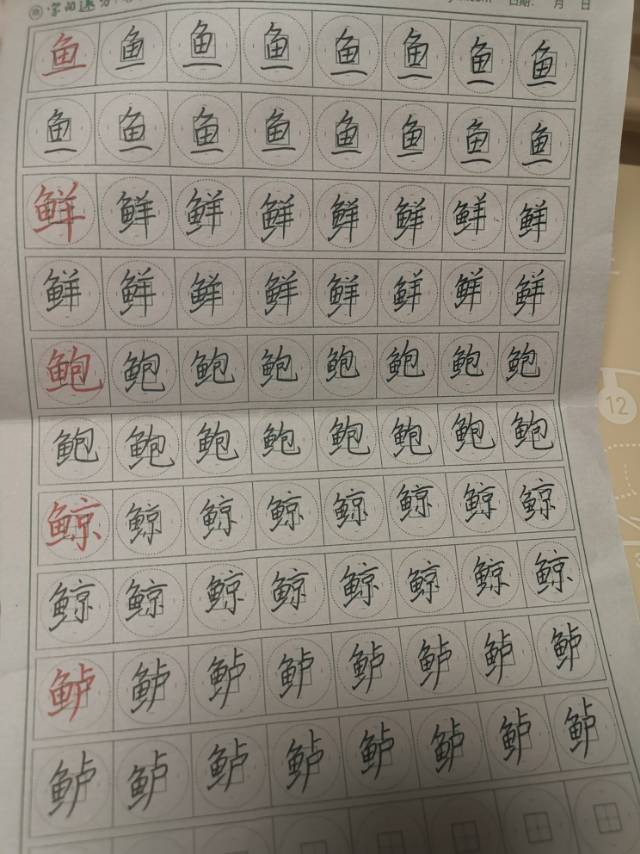 日期: 月 日
鱼 鱼 鱼 鱼 鱼 鱼 鱼 鱼
鱼 鱼 鱼 鱼 鱼 鱼 鱼 鱼
鲜 鲜 鲜 鲜 鲜 鲜 鲜 鲜
鲜 鲜 鲜 鲜 鲜 鲜 鲜 鲜
鲍 鲍 鲍 鲍 鲍 鲍 鲍 鲍
鲍 鲍 鲍 鲍 鲍 鲍 鲍 鲍
鲸 鲸 鲸 鲸 鲸 鲸 鲸 鲸
鲸 鲸 鲸 鲸 鲸 鲸 鲸 鲸
鲈 鲈 鲈 鲈 鲈 鲈 鲈 鲈
鲈 鲈 鲈 鲈 鲈 鲈 鲈 鲈
12